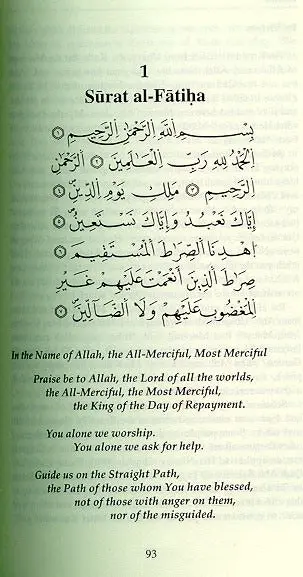 1
Sūrat al-Fātiḥa
بِسْمِ اللَّهِ الرَّحْمَٰنِ الرَّحِيمِ ۝١
الْحَمْدُ لِلَّهِ رَبِّ الْعَالَمِينَ ۝٢ الرَّحْمَٰنِ
الرَّحِيمِ ۝٣ مَلِكِ يَوْمِ الدِّينِ ۝٤
إِيَّاكَ نَعْبُدُ وَإِيَّاكَ نَسْتَعِينُ ۝٥
اهْدِنَا الصِّرَاطَ الْمُسْتَقِيمَ ۝٦
صِرَاطَ الَّذِينَ أَنْعَمْتَ عَلَيْهِمْ غَيْرِ
الْمَغْضُوبِ عَلَيْهِمْ وَلَا الضَّالِّينَ ۝٧
In the Name of Allah, the All-Merciful, Most Merciful
Praise be to Allah, the Lord of all the worlds,
the All-Merciful, the Most Merciful,
the King of the Day of Repayment.
You alone we worship.
You alone we ask for help.
Guide us on the Straight Path,
the Path of those whom You have blessed,
not of those with anger on them,
nor of the misguided.
93